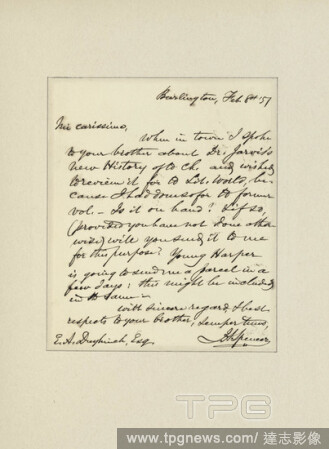 Burlington, Feb 8th '51
Mi carissimo,
When in town I spoke
to your brother about Dr. Jarvis's
new History of ye Ch. and wished
to review it for ye Lit. World, be-
cause I had done so for ye former
vol. — Is it on hand? & if so,
(provided you have not done other
wise) will you send it to me
for this purpose? Young Harper
is going to send me a parcel in a
few days; this might be included
in ye same —
With sincere regard, & best
respects to your brother, semper tuus,
E. A. Duyckinck, Esq.
J. A. Spencer
TPG
www.tpgnews.com/ 達志影像